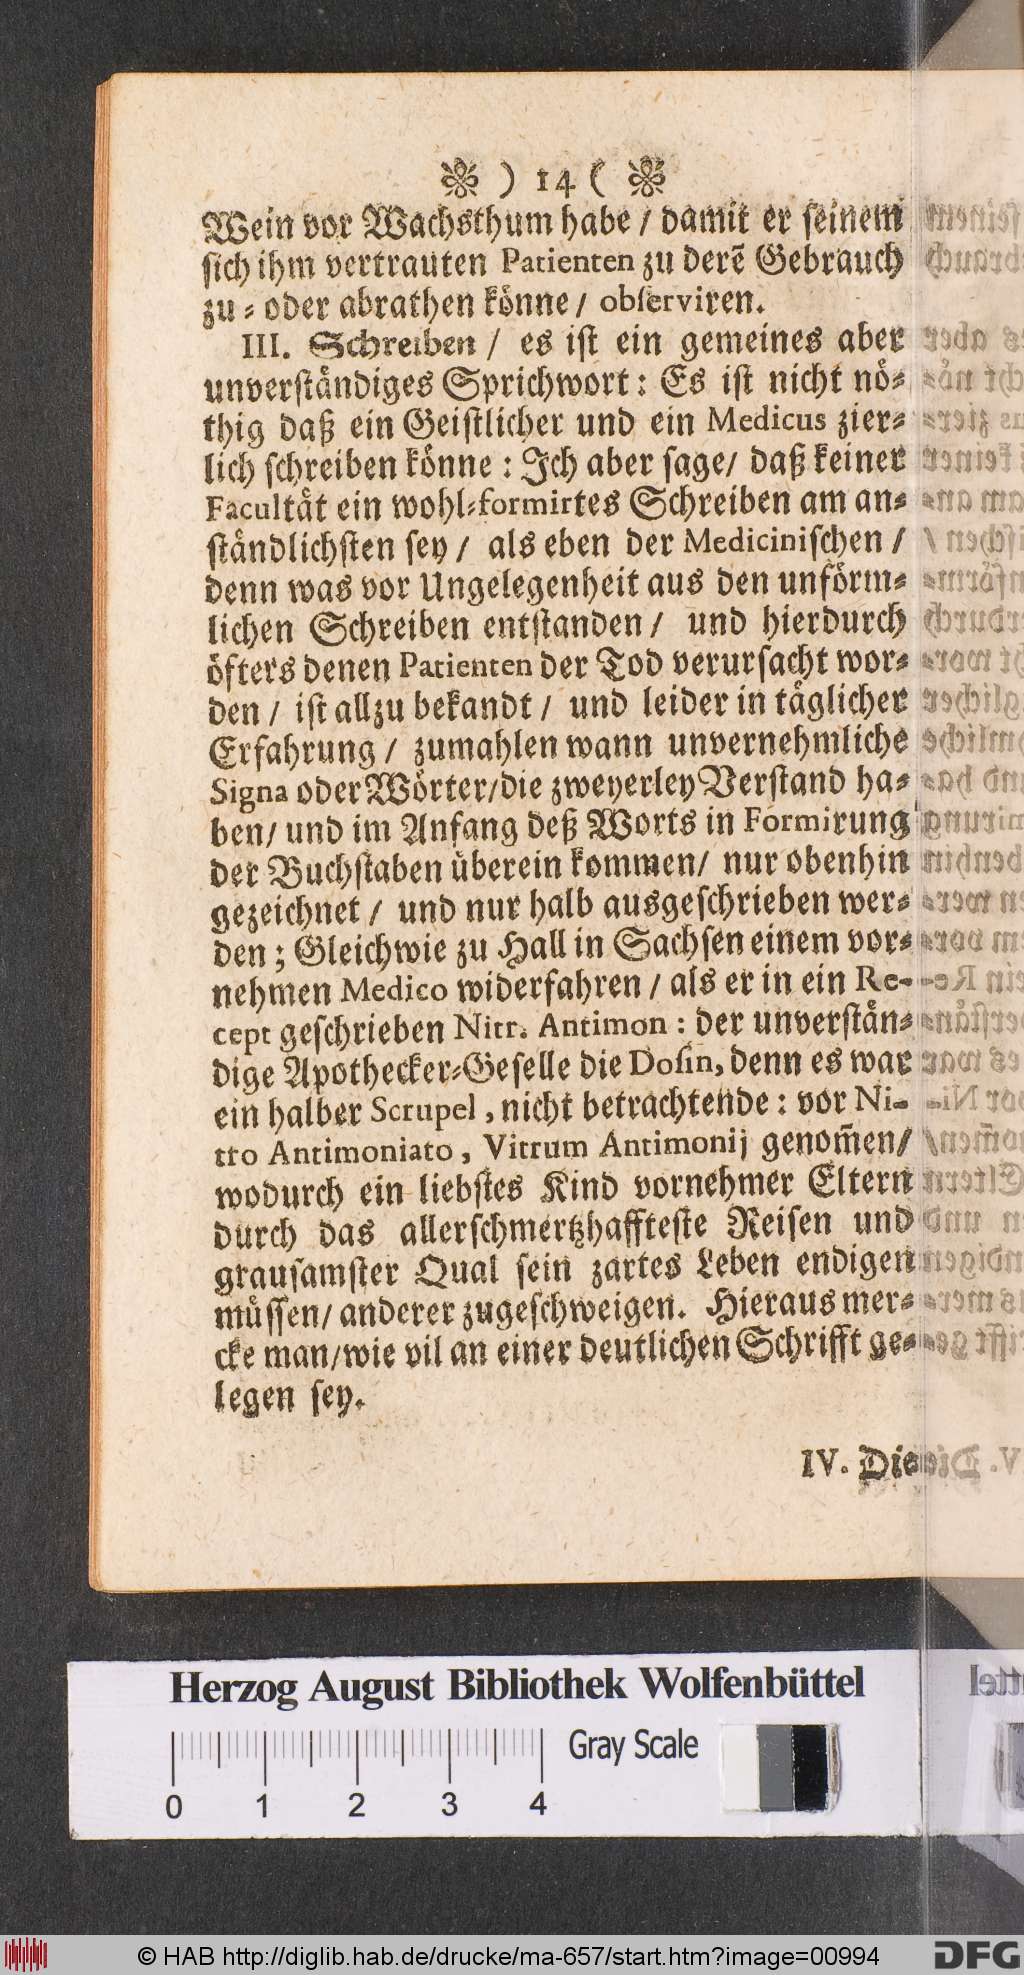 ) 14 (
Wein vor Wachsthum habe / damit er seinem
sich ihm vertrauten Patienten zu derẽ Gebrauch
zu = oder abrathen könne / observiren.
III. Schreiben / es ist ein gemeines aber
unverständiges Sprichwort: Es ist nicht nö=
thig daß ein Geistlicher und ein Medicus zier=
lich schreiben könne : Ich aber sage / daß keiner
Facultät ein wohl=formirtes Schreiben am an=
ständlichsten sey / als eben der Medicinischen /
denn was vor Ungelegenheit aus den unförm=
lichen Schreiben entstanden / und hierdurch
öfters denen Patienten der Tod verursacht wor=
den / ist allzu bekandt / und leider in täglicher
Erfahrung / zumahlen wann unvernehmliche
Signa oder Wörter/die zweyerley Verstand ha=
ben/ und im Anfang deß Worts in Formirung
der Buchstaben überein kommen/ nur obenhin
gezeichnet / und nur halb ausgeschrieben wer=
den ; Gleichwie zu Hall in Sachsen einem vor=
nehmen Medico widerfahren / als er in ein Re-
cept geschrieben Nitr. Antimon : der unverstän=
dige Apothecker=Geselle die Dosin, denn es war
ein halber Scrupel, nicht betrachtende : vor Ni-
tro Antimoniato, Vitrum Antimonij genom̃en/
wodurch ein liebstes Kind vornehmer Eltern
durch das allerschmertzhaffteste Reisen und
grausamster Qual sein zartes Leben endigen
müssen/ anderer zugeschweigen. Hieraus mer=
cke man/wie vil an einer deutlichen Schrifft ge=
legen sey.
IV. Die
Herzog August Bibliothek Wolfenbüttel
Gray Scale
0 1 2 3 4
© HAB http://diglib.hab.de/drucke/ma-657/start.htm?image=00994
DFG